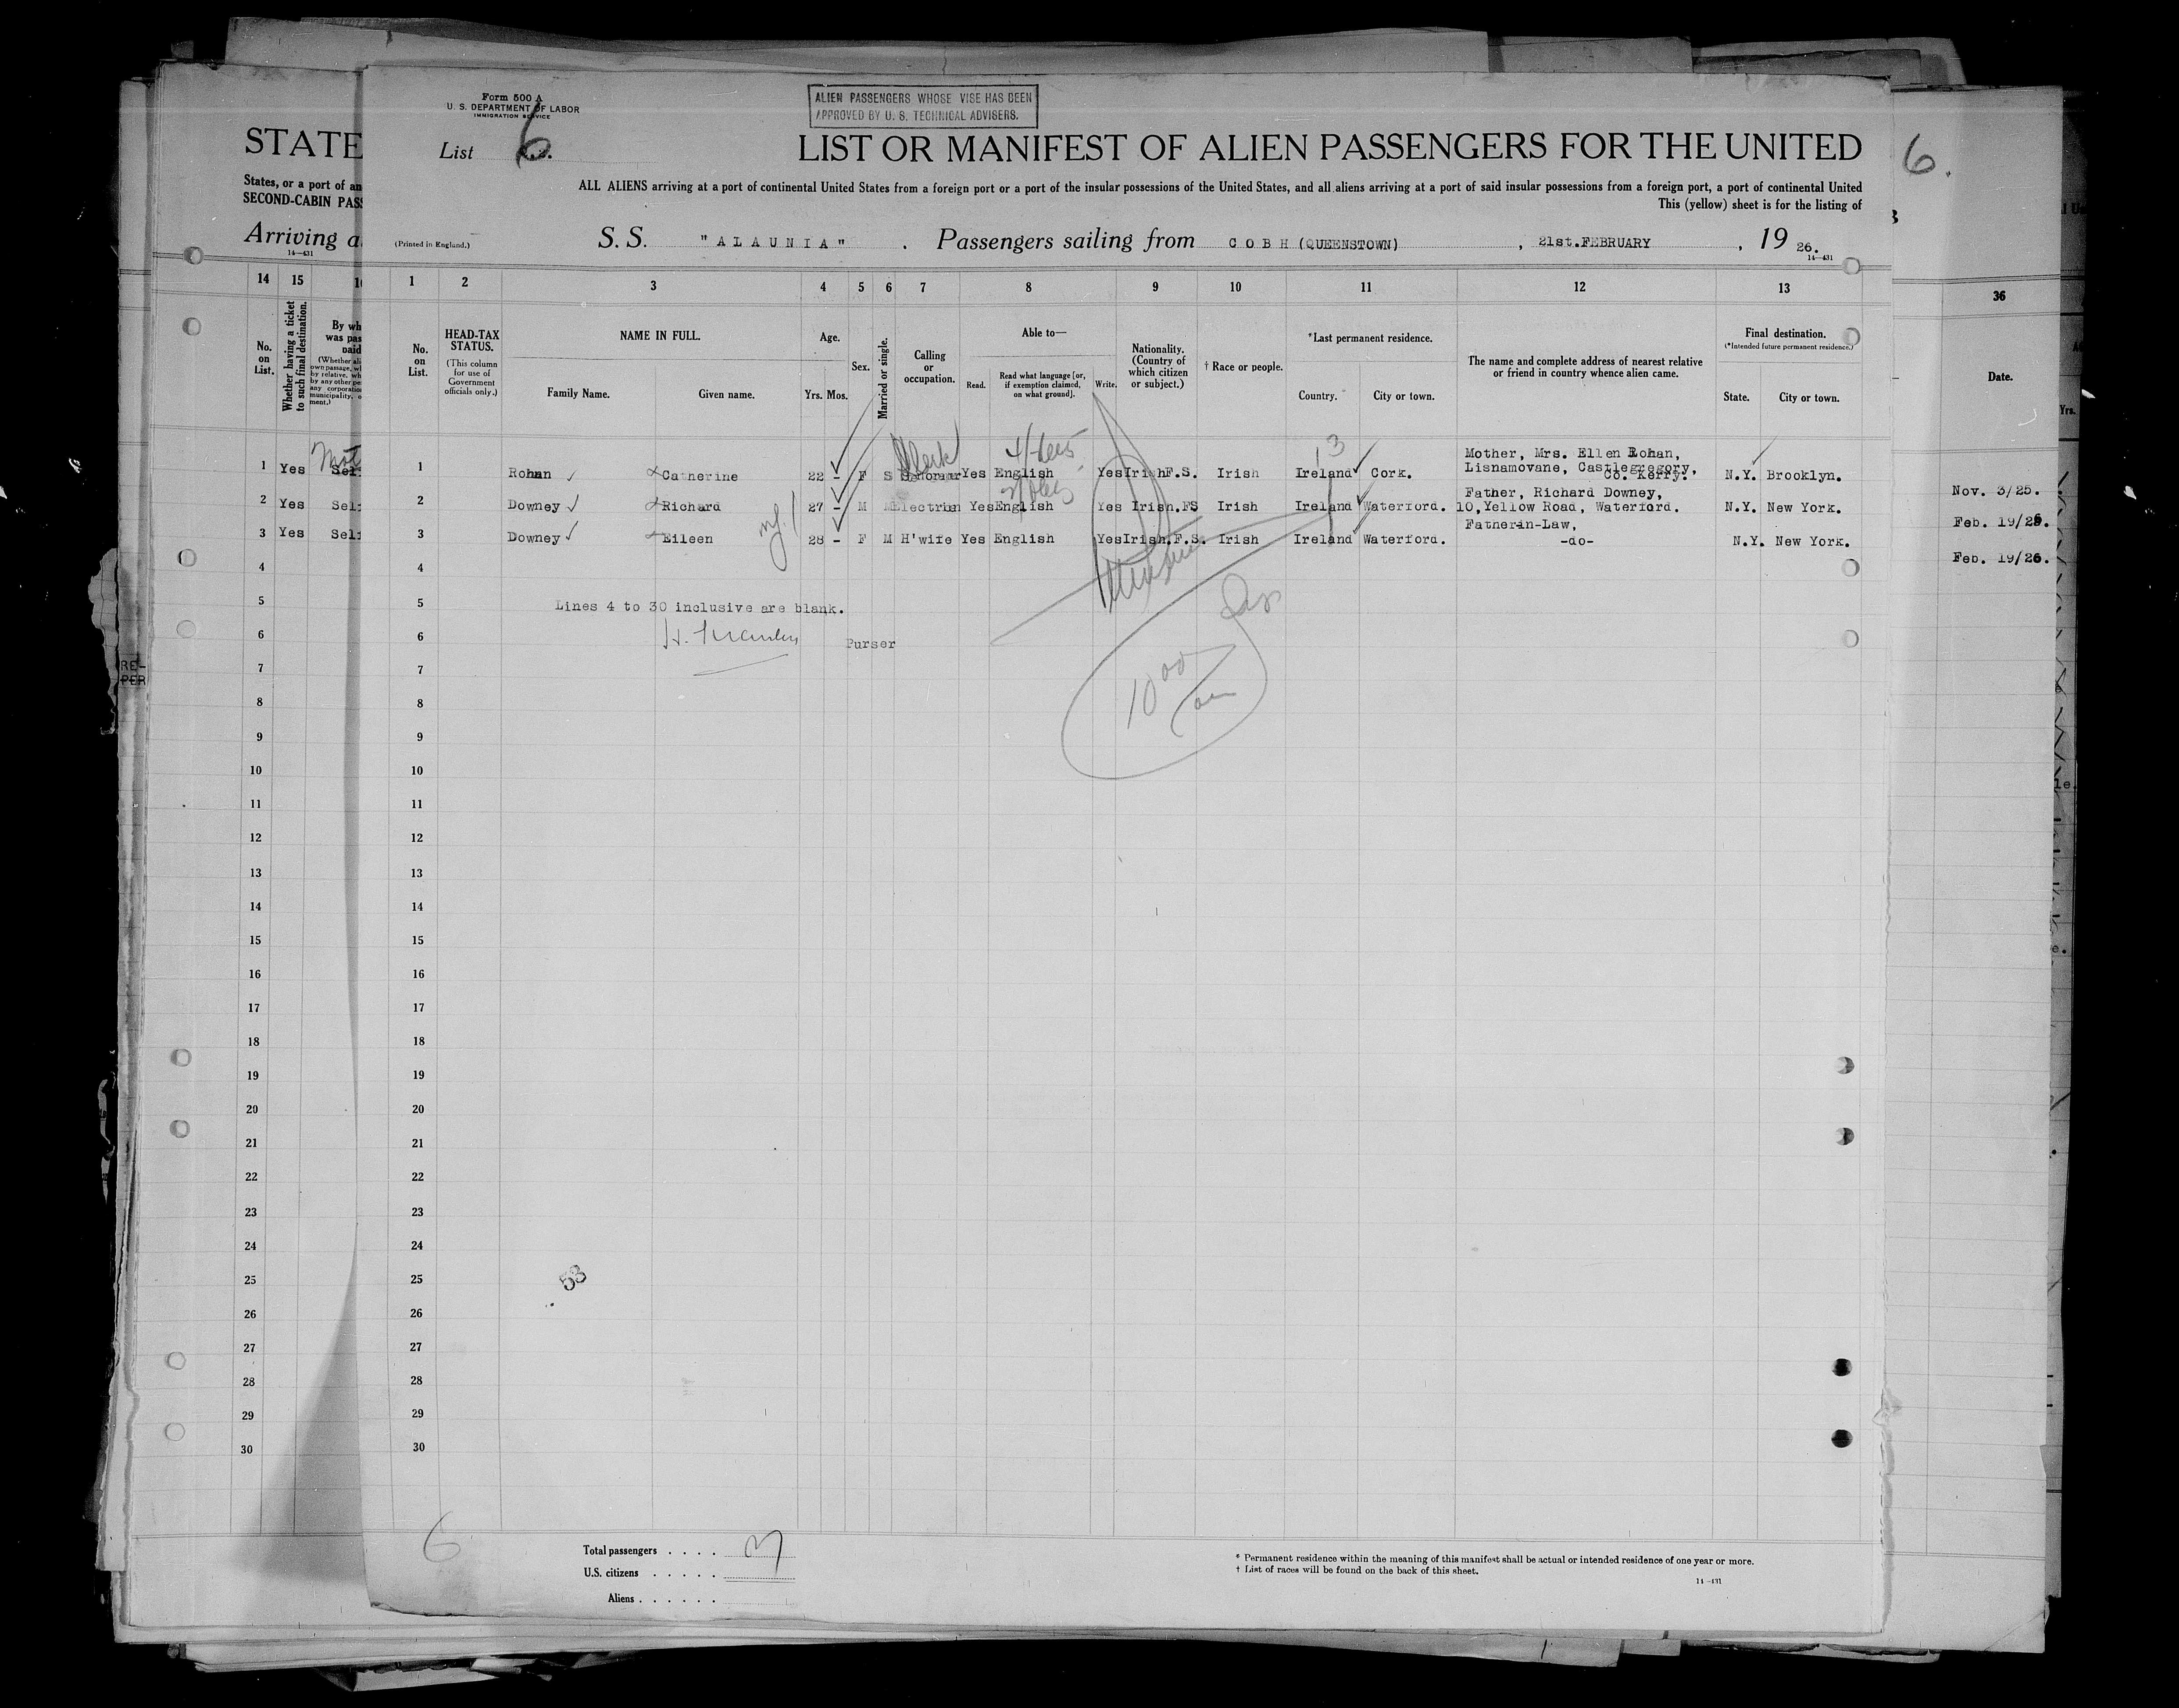 Form 500 A
U. S. DEPARTMENT OF LABOR
IMMIGRATION SERVICE
ALIEN PASSENGERS WHOSE VISE HAS BEEN
APPROVED BY U. S. TECHNICAL ADVISERS.
STATE
List 6
LIST OR MANIFEST OF ALIEN PASSENGERS FOR THE UNITED
6.
States, or a port of an
SECOND-CABIN PAS
ALL ALIENS arriving at a port of continental United States from a foreign port or a port of the insular possessions of the United States, and all aliens arriving at a port of said insular possessions from a foreign port, a port of continental United
This (yellow) sheet is for the listing of
Arriving a
14—431
(Printed in England.)
S.S. "ALAUNIA". Passengers sailing from COBH (QUEENSTOWN), 21st.FEBRUARY, 19 26.
14—431
14 15 1 2 3 4 5 6 7 8 9 10 11 12 13 36
No. on List.
Whether having a ticket to such final destination.
By wh
was pas
paid
No. on List.
HEAD-TAX STATUS.
(This column for use of Government officials only.)
NAME IN FULL.
Family Name. Given name.
Age.
Yrs. Mos.
Sex.
Married or single.
Calling or occupation.
Able to—
Read. Read what language [or, if exemption claimed, on what ground]. Write.
Nationality. (Country of which citizen or subject.)
† Race or people.
*Last permanent residence.
Country. City or town.
The name and complete address of nearest relative or friend in country whence alien came.
Final destination.
(*Intended future permanent residence.)
State. City or town.
Date.
Yrs.
Clerk
13
1 Yes 1 Rohan Catherine 22 - F S Yes English Yes Irish F.S. Irish Ireland Cork. Mother, Mrs. Ellen Rohan,
Lisnamovane, Castlegregory,
Co. Kerry. N.Y. Brooklyn. Nov. 3/25.
2 Yes Sel 2 Downey Richard 27 - M M Electrian Yes English Yes Irish.FS Irish Ireland Waterford. Father, Richard Downey,
10,Yellow Road, Waterford. N.Y. New York. Feb. 19/26.
3 Yes Sel 3 Downey Eileen 28 - F M H'wife Yes English Yes Irish.F.S. Irish Ireland Waterford. Father-in-Law,
-do- N.Y. New York. Feb. 19/26.
4 4
5 5 Lines 4 to 30 inclusive are blank.
6 6 Purser
7 7
RE-
PER
10 00
am
8 8
9 9
10 10
11 11
12 12
13 13
14 14
15 15
16 16
17 17
18 18
19 19
20 20
21 21
22 22
23 23
24 24
25 25
53
26 26
27 27
28 28
29 29
30 30
6
Total passengers . . . . 3
U.S. citizens . . . . .
Aliens . . . . . .
* Permanent residence within the meaning of this manifest shall be actual or intended residence of one year or more.
† List of races will be found on the back of this sheet.
14—431